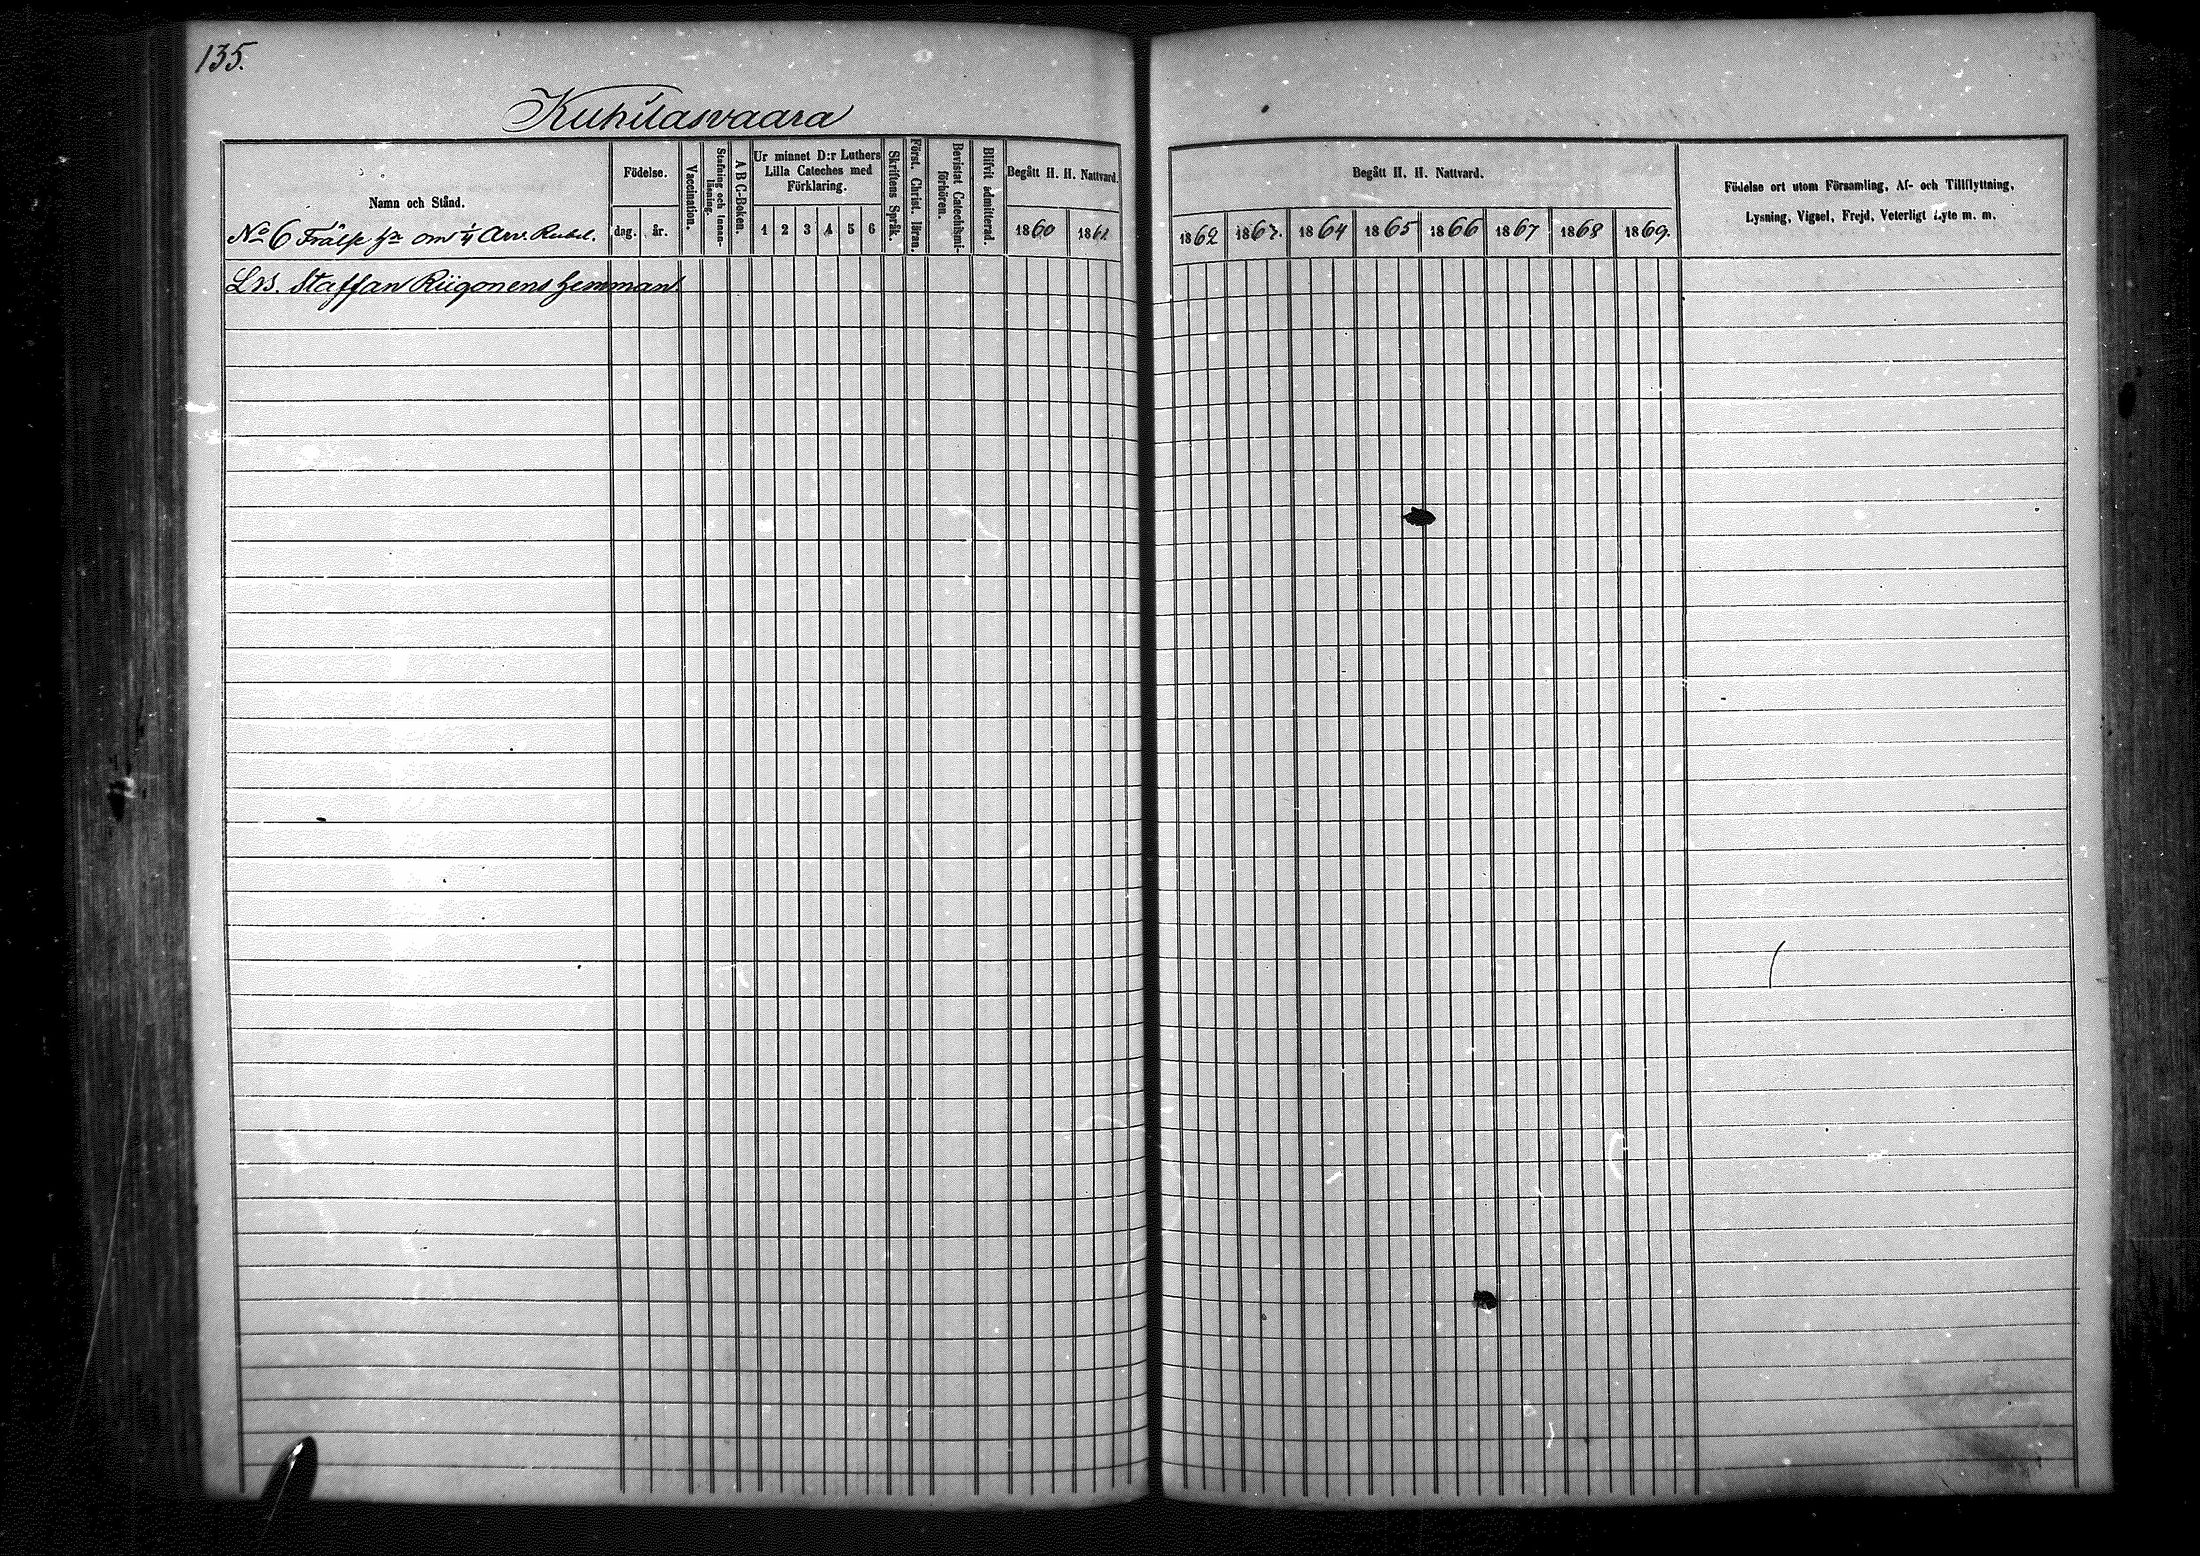 135.
Kuhilasvaara
Namn och Stånd.
No 6 Frälse hn om 1/4 Arv. Rubel.
Födelse.
dag. år.
Vaccination.
Stafning och Innan-
läsning.
A B C-Boken.
Ur minnet D:r Luthers
Lilla Cateches med
Förklaring.
1 2 3 4 5 6
Skriftens Språk.
Först. Christ. läran.
Bevistat Catechismi-
förhören.
Blifvit admitterad.
Begått H. H. Nattvard.
1860 1861
Begått H. H. Nattvard.
1862 1863. 1864 1865 1866 1867 1868 1869.
Födelse ort utom Församling, Af- och Tillflyttning,
Lysning, Vigsel, Frejd, Veterligt Lyte m. m.
Lrs. Staffan Riigonens hemman.